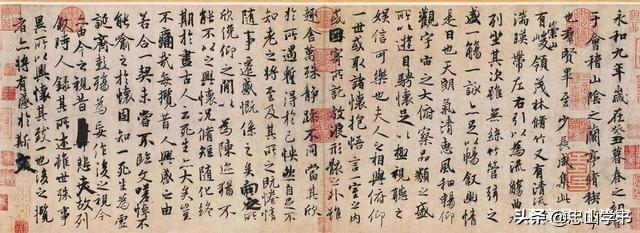 永和九年歲在癸丑暮春之初
于會稽山陰之蘭亭脩稧
也群賢畢至少長咸集此
有崇山峻領茂林脩竹又有清流
湍暎帶左右引以為流觴曲
列坐其次雖無絲竹管弦之
盛一觴一詠亦足以暢敘幽情
是日也天朗氣清惠風和暢仰
觀宇宙之大俯察品類之盛
所以遊目騁懷足以極視聽之
娛信可樂也夫人之相與俯仰
一世或取諸懷抱悟言一室之內
或因寄所託放浪形骸之外雖
趣舍萬殊靜躁不同當其欣
於所遇蹔得於己怏然自足不
知老之將至及其所之既惓情
隨事遷感慨係之矣向之所
欣俛仰之閒以為陳迹猶不
能不以之興懷況脩短隨化終
期於盡古人云死生亦大矣豈
不痛哉每攬昔人興感之由
若合一契未嘗不臨文嗟悼不
能喻之於懷固知一死生為虛
誕齊彭殤為妄作後之視今
亦由今之視昔悲夫故列
敘時人錄其所述雖世殊事
異所以興懷其致一也後之攬
者亦將有感於斯文
头条 @忠山学书